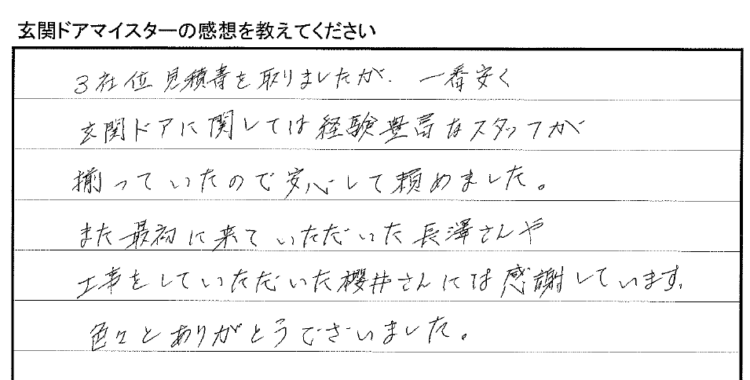 玄関ドアマイスターの感想を教えてください
3社位見積書を取りましたが、一番安く
玄関ドアに関しては経験豊富なスタッフが
揃っていたので安心して頼めました。
また最初に来ていただいた長澤さんや
工事をしていただいた櫻井さんには感謝しています。
色々とありがとうございました。